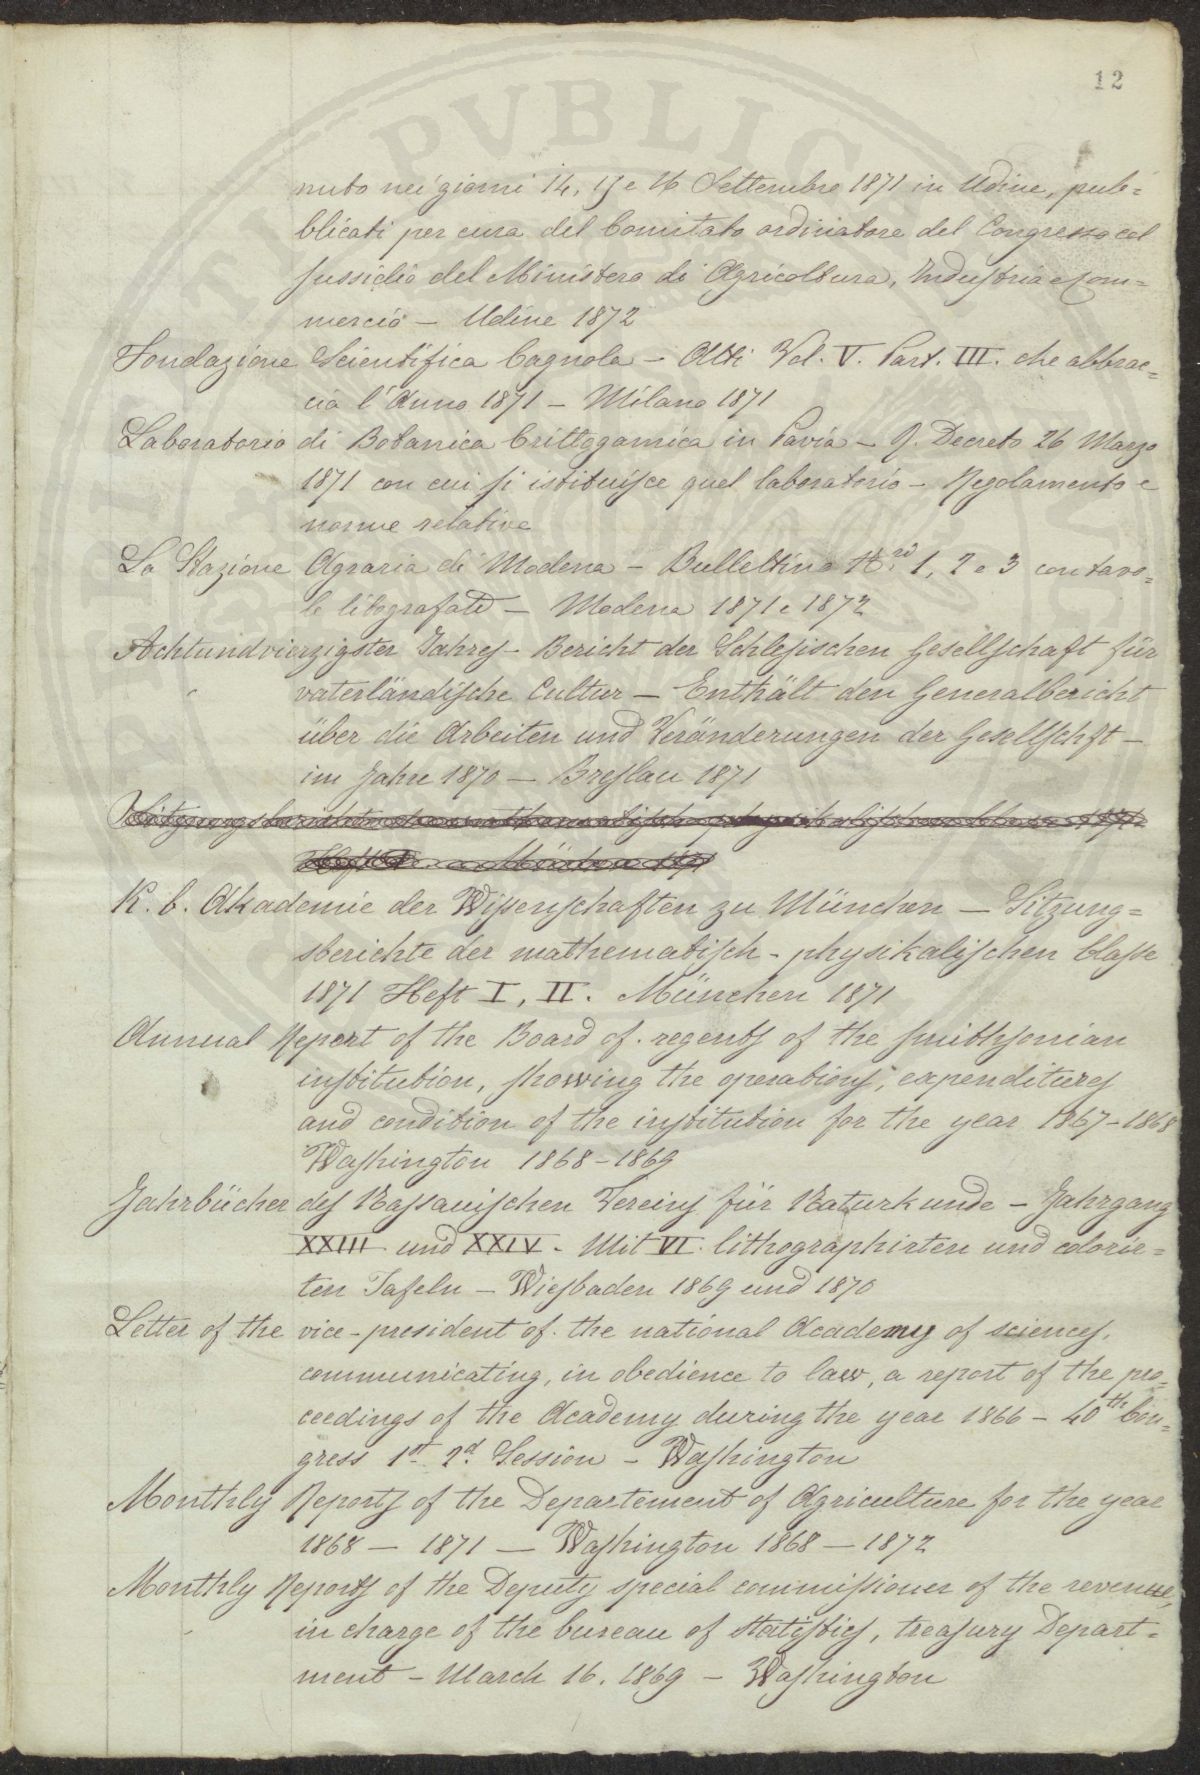 12
nuto nei giorni 14, 15 e 16 Settembre 1871 in Udine, pub=
blicati per cura del Comitato ordinatore del Congresso col
sussidio del Ministero di Agricoltura, Industria e Com=
mercio – Udine 1872
Fondazione Scientifica Cagnola – Atti Vol. V. Part. III. che abbrac=
cia l'Anno 1871 – Milano 1871
Laboratorio di Botanica Crittogamica in Pavia – R. Decreto 26 Marzo
1871 con cui si istituisce quel laboratorio – Regolamento e
norme relative
La Stazione Agraria di Modena – Bullettino N.ri 1, 2 e 3 con tavo=
le litografate – Modena 1871 e 1872
Achtundvierzigster Jahres-Bericht der Schlesischen Gesellschaft für
vaterländische Cultur – Enthält den Generalbericht
über die Arbeiten und Veränderungen der Gesellschft –
im Jahre 1870 – Breslau 1871
Sitzungsberichte der mathematisch-physikalischen Classe 1871
Heft München 1871
K. b. Akademie der Wissenschaften zu München – Sitzung=
sberichte der mathematisch-physikalischen Classe
1871 Heft I, II. München 1871
Annual Report of the Board of regents of the smithsonian
institution, showing the operations, expenditures
and condition of the institution for the year 1867–1868
Washington 1868–1869
Jahrbücher des Nassauischen Vereins für Naturkunde – Jahrgang
XXIII und XXIV. Mit VI lithographirten und colorir=
ten Tafeln – Wiesbaden 1869 und 1870
Letter of the vice-president of the national Academy of sciences,
communicating, in obedience to law, a report of the pro=
ceedings of the Academy during the year 1866 – 40th Con=
gress 1st 2d Session – Washington
Monthly Reports of the Departement of Agriculture for the year
1868 – 1871 – Washington 1868 – 1872
Monthly Reports of the Deputy special commissioner of the revenue,
in charge of the bureau of statistics, treasury Depart=
ment – March 16. 1869 – Washington